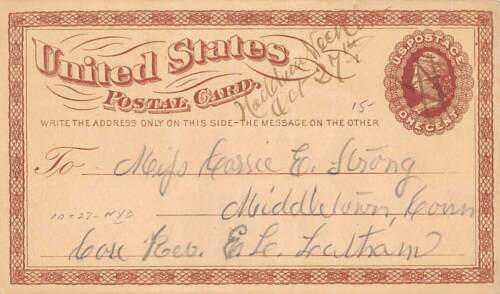 United States
Postal Card.
Haddam Neck Ct
Oct 27th
U.S. POSTAGE
ONE CENT
15-
WRITE THE ADDRESS ONLY ON THIS SIDE-THE MESSAGE ON THE OTHER
To Miss Cassie E. Strong
Middletown, Conn
10-27-NYD
Care Rev. E. E. Latham